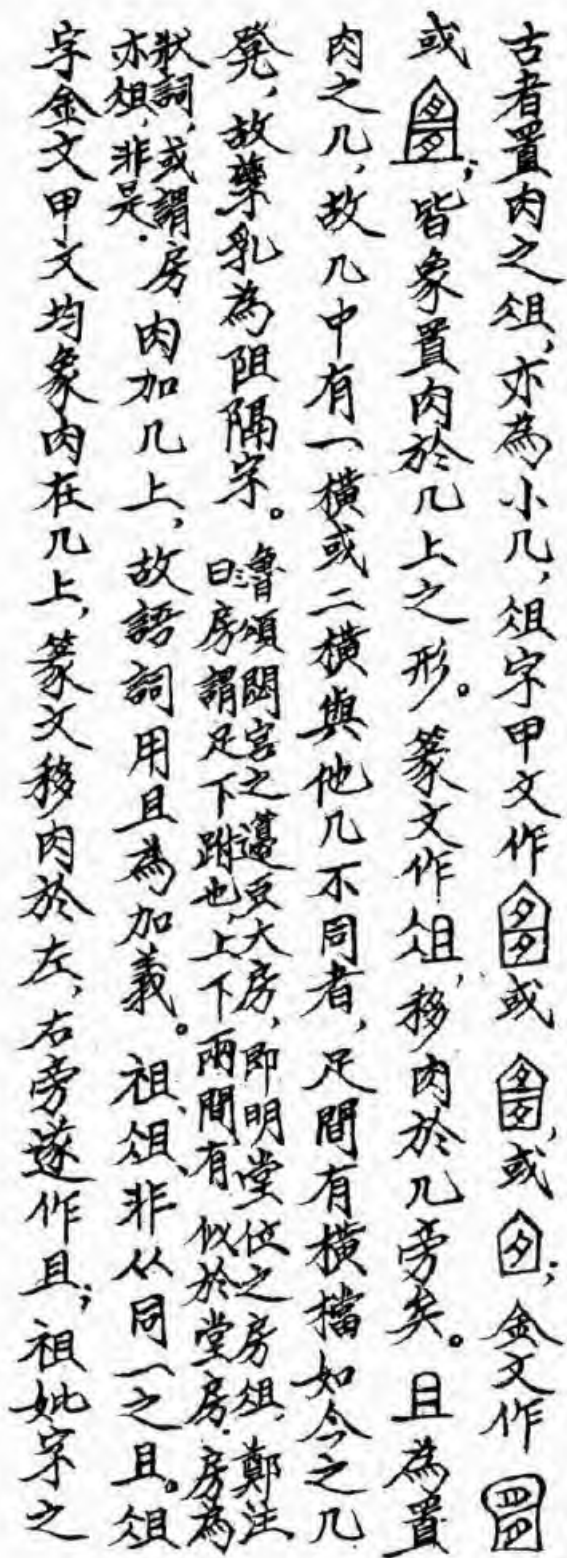 古者置肉之俎，亦為小几，俎字甲文作或，或；金文作
或；皆象置肉於几上之形。篆文作俎，移肉於几旁矣。且為置
肉之几，故几中有一橫或二橫與他几不同者，足間有橫檔如今之几
凳，故孳乳為阻隔字。魯頌閟宮之籩豆大房，即明堂位之房俎，鄭注
曰：房謂足下跗也，上下兩間，有似於堂房。房為
狀詞，或謂房
亦俎，非是。肉加几上，故語詞用且為加義。祖、俎、非从同一之且。俎
字金文甲文均象肉在几上，篆文移肉於左，右旁遂作且；祖妣字之